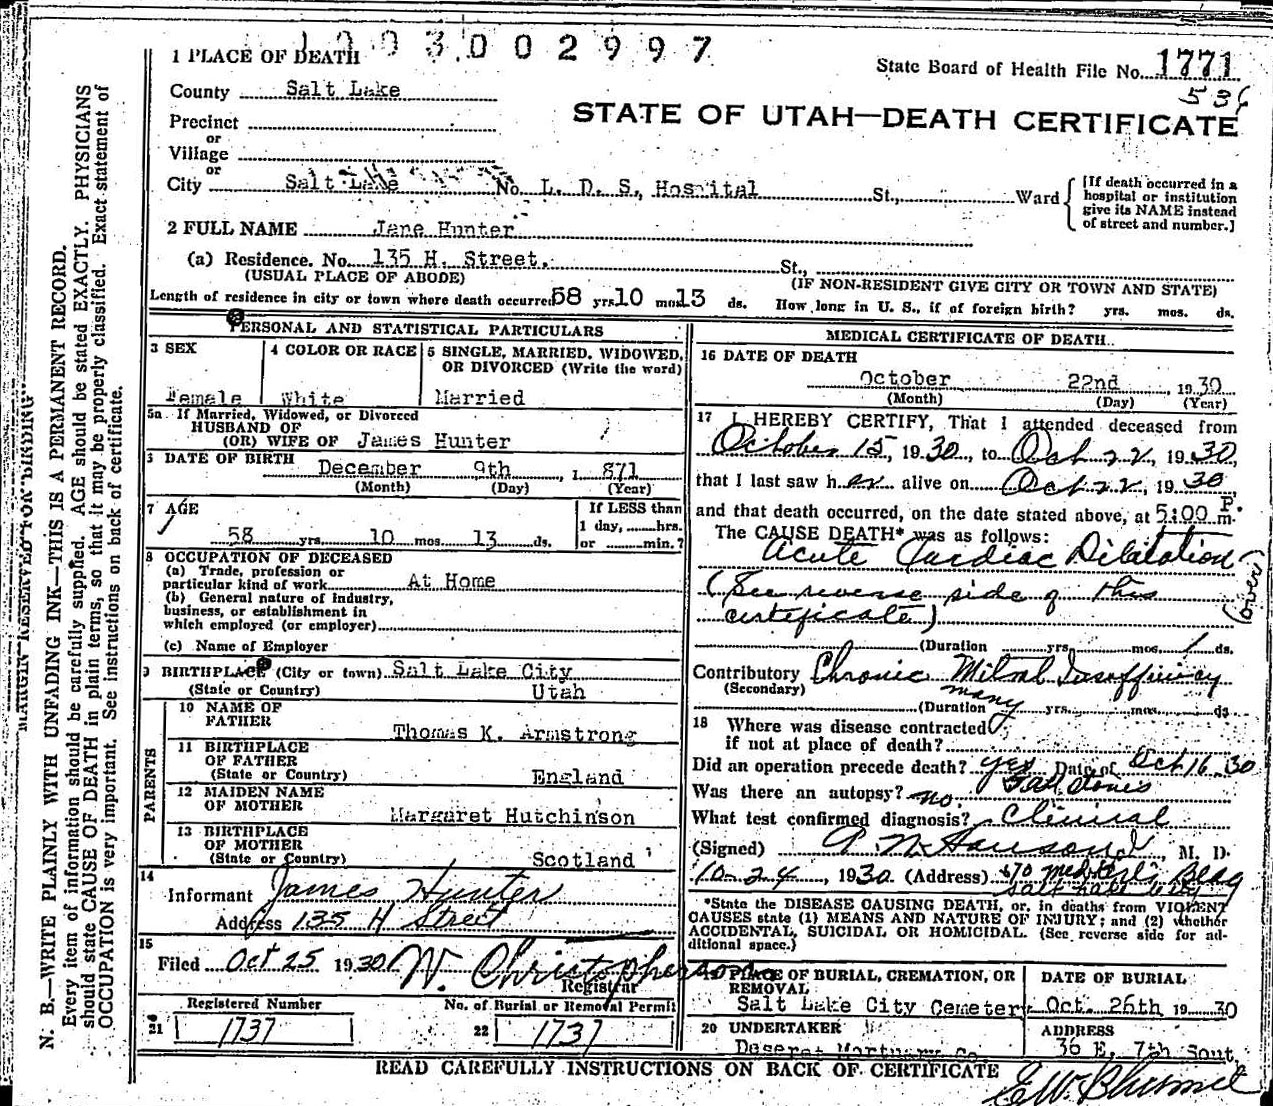 1003002997
1 PLACE OF DEATH
State Board of Health File No. 1771
County Salt Lake
STATE OF UTAH—DEATH CERTIFICATE
Precinct
or
Village
or
City Salt Lake No. L. D. S., Hospital St., Ward
[If death occurred in a
hospital or institution
give its NAME instead
of street and number.]
2 FULL NAME Jane Hunter
(a) Residence. No. 135 H. Street. St.,
(USUAL PLACE OF ABODE) (IF NON-RESIDENT GIVE CITY OR TOWN AND STATE)
Length of residence in city or town where death occurred 58 yrs. 10 mo. 13 ds. How long in U. S., if of foreign birth? yrs. mos. ds.
PERSONAL AND STATISTICAL PARTICULARS
3 SEX
Female
4 COLOR OR RACE
White
5 SINGLE, MARRIED, WIDOWED,
OR DIVORCED (Write the word)
Married
5a If Married, Widowed, or Divorced
HUSBAND OF
(OR) WIFE OF James Hunter
DATE OF BIRTH December 9th, 1871
(Month) (Day) (Year)
7 AGE
58 yrs. 10 mos. 13 ds.
If LESS than
1 day, hrs.
or min.?
8 OCCUPATION OF DECEASED
(a) Trade, profession or
particular kind of work At Home
(b) General nature of industry,
business, or establishment in
which employed (or employer)
(c) Name of Employer
9 BIRTHPLACE (City or town) Salt Lake City
(State or Country) Utah
PARENTS
10 NAME OF
FATHER Thomas K. Armstrong
11 BIRTHPLACE
OF FATHER
(State or Country) England
12 MAIDEN NAME
OF MOTHER Margaret Hutchinson
13 BIRTHPLACE
OF MOTHER
(State or Country) Scotland
14
Informant James Hunter
Address 135 H Street
15
Filed Oct 25 1930 W. Christopherson
Registrar
Registered Number
21 1737
No. of Burial or Removal Permit
22 1737
MEDICAL CERTIFICATE OF DEATH
16 DATE OF DEATH
October 22nd, 1930
(Month) (Day) (Year)
17 I HEREBY CERTIFY, That I attended deceased from
October 15, 1930, to Oct 22, 1930,
that I last saw her alive on Oct 22, 1930
and that death occurred, on the date stated above, at 5:00 P. m.
The CAUSE DEATH* was as follows:
Acute Cardiac Dilatation
(See reverse side of this
certificate) (over)
(Duration yrs. mos. 1 ds.
Contributory Chronic Mitral Insufficiency
(Secondary)
(Duration many yrs. mos. ds
18 Where was disease contracted
if not at place of death?
Did an operation precede death? yes Date of Oct 16 30
Gall stones
Was there an autopsy? no.
What test confirmed diagnosis? Clinical
(Signed) M. D.
10-24, 1930 (Address)
Salt Lake City
*State the DISEASE CAUSING DEATH, or, in deaths from VIOLENT
CAUSES state (1) MEANS AND NATURE OF INJURY; and (2) whether
ACCIDENTAL, SUICIDAL OR HOMICIDAL. (See reverse side for ad-
ditional space.)
19 PLACE OF BURIAL, CREMATION, OR
REMOVAL
Salt Lake City Cemetery
DATE OF BURIAL
Oct. 26th 1930
20 UNDERTAKER
Deseret Mortuary Co.
ADDRESS
36 E, 7th Sout,
READ CAREFULLY INSTRUCTIONS ON BACK OF CERTIFICATE
MARGIN RESERVED FOR BINDING
N. B.—WRITE PLAINLY WITH UNFADING INK—THIS IS A PERMANENT RECORD.
Every item of information should be carefully supplied. AGE should be stated EXACTLY. PHYSICIANS
should state CAUSE OF DEATH in plain terms, so that it may be properly classified. Exact statement of
OCCUPATION is very important. See instructions on back of certificate.